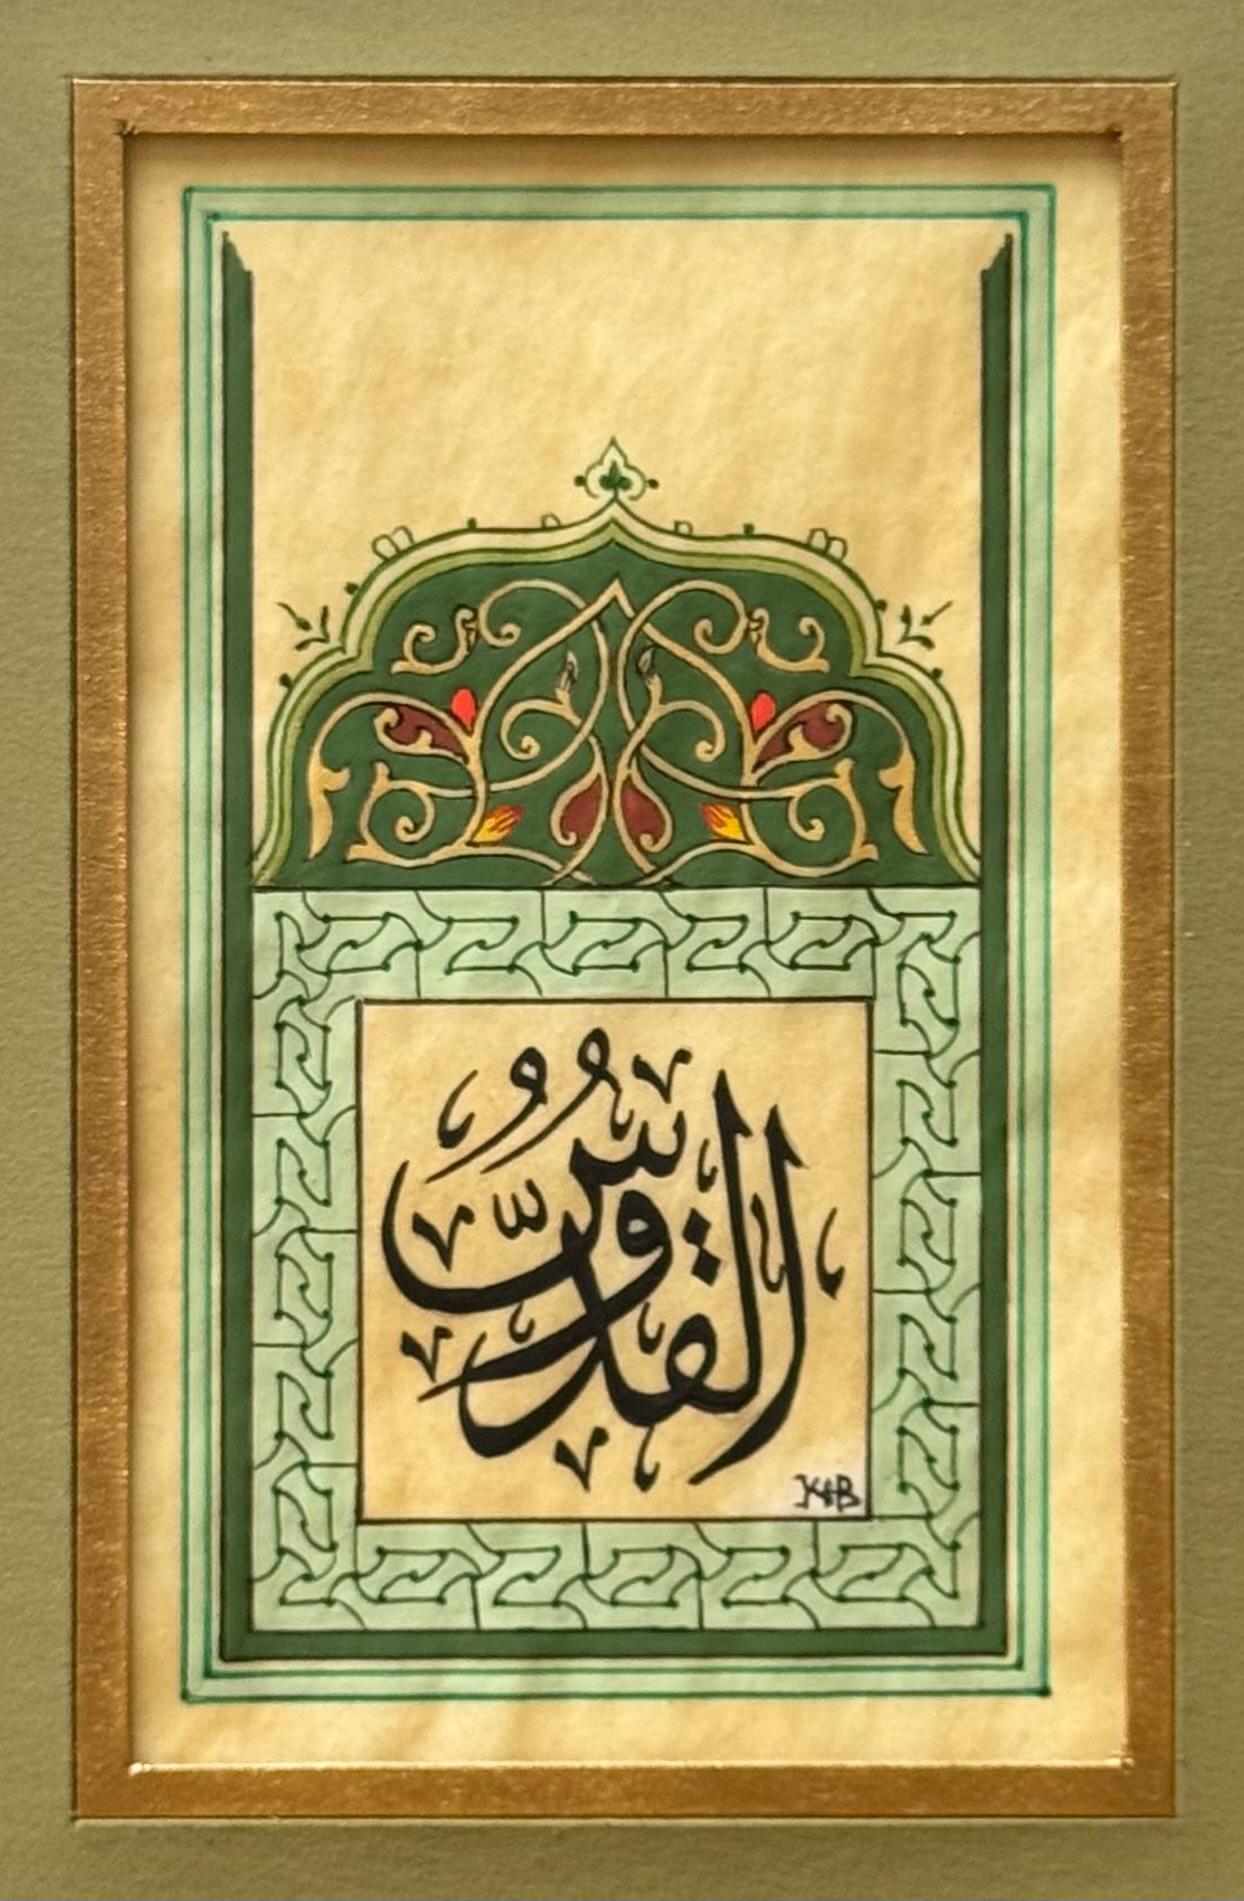 القدوسُّ
KHB